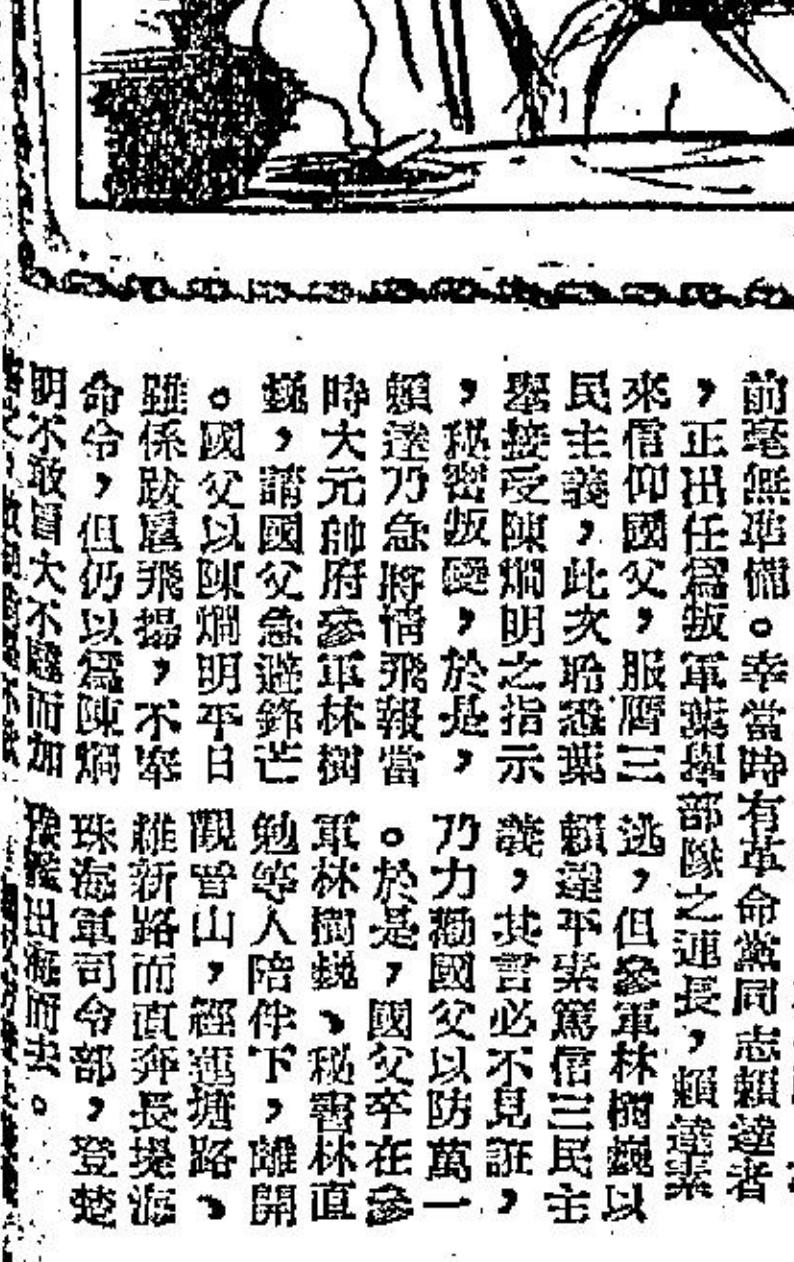 前毫無準備。幸當時有革命黨同志賴達者
，正出任爲叛軍葉舉部隊之連長，賴達素
來信仰國父，服膺三
民主義，此次聆悉葉
舉接受陳烱明之指示
，秘密叛變，於是，
賴達乃急將情飛報當
時大元帥府參軍林樹
巍，請國父急避鋒芒
。國父以陳烱明平日
雖係跋扈飛揚，不奉
命令，但仍以爲陳烱
明不敢冒大不韙而加
逃，但參軍林樹巍以
賴達平素篤信三民主
義，其言必不見誑，
乃力勸國父以防萬一
。於是，國父卒在參
軍林樹巍、秘書林直
勉等人陪伴下，離開
觀音山，經蓮塘路、
維新路而直奔長堤海
珠海軍司令部，登楚
豫艦出海而去。